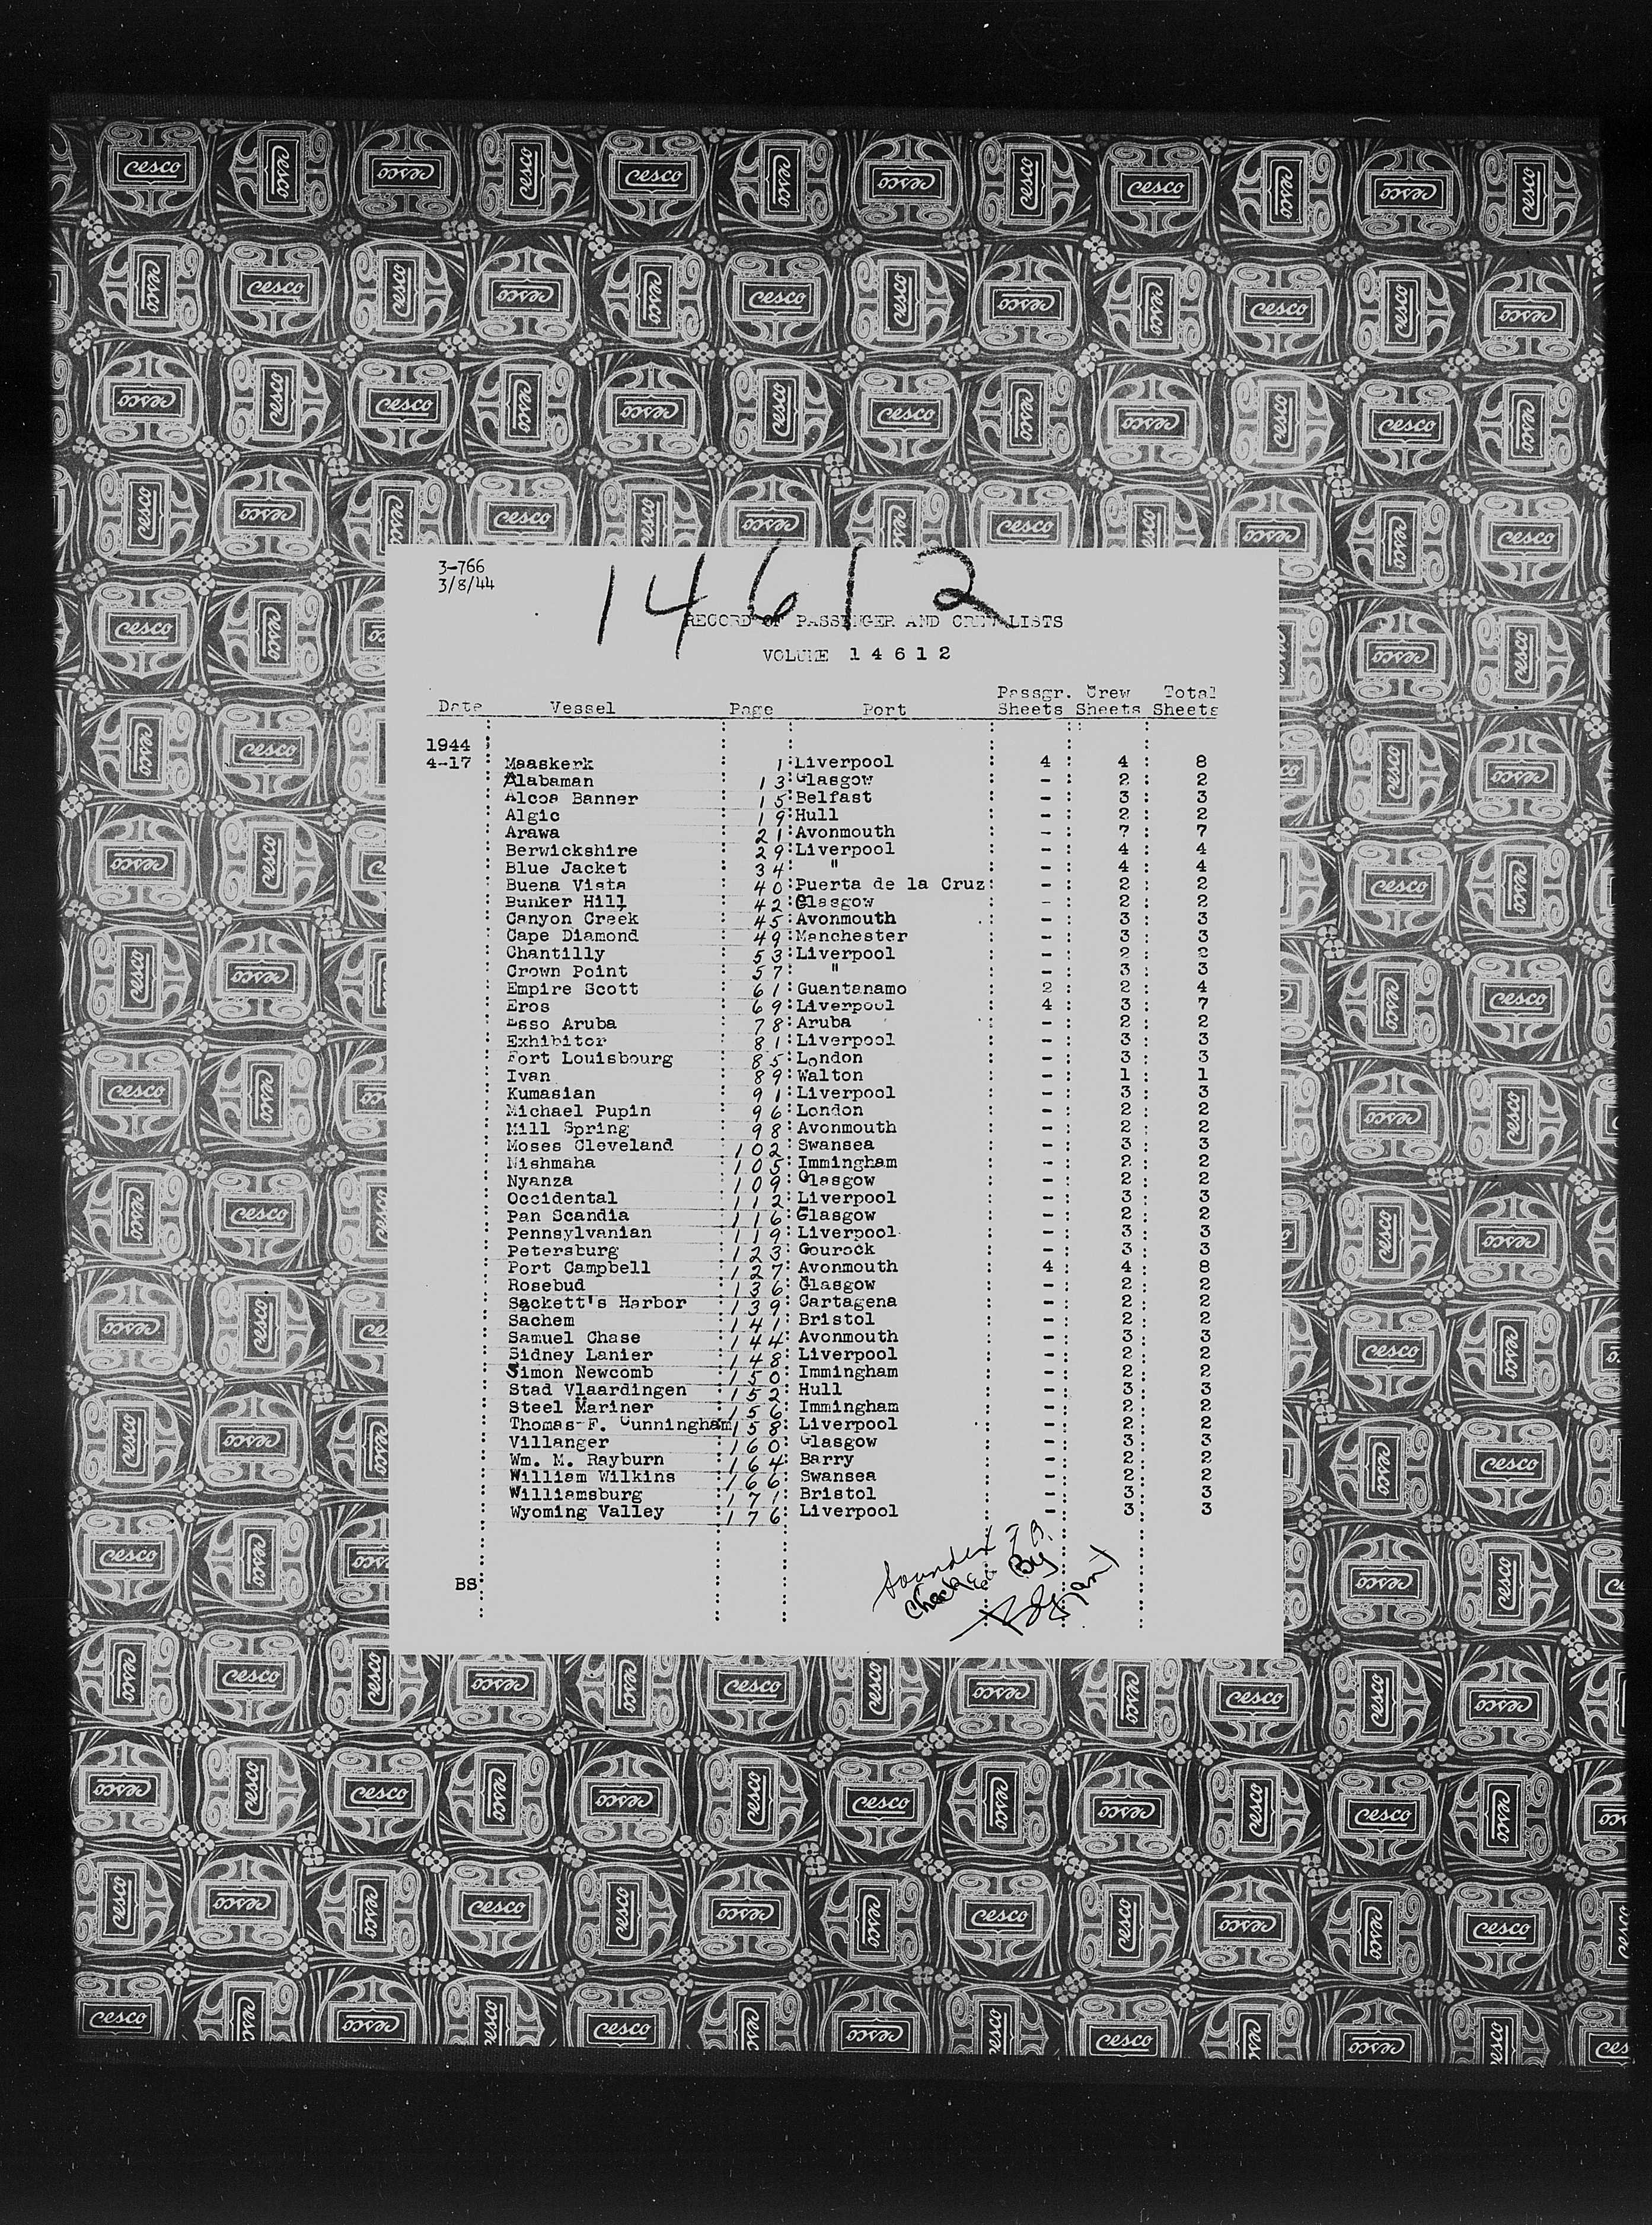 3-766
3/8/44
14612
RECORD OF PASSENGER AND CREW LISTS
VOLUME 1 4 6 1 2
Date Vessel Page Port Passgr. Sheets Crew Sheets Total Sheets
1944
4-17 Maaskerk 1 Liverpool 4 4 8
Alabaman 13 Glasgow - 2 2
Alcoa Banner 15 Belfast - 3 3
Algic 19 Hull - 2 2
Arawa 21 Avonmouth - 7 7
Berwickshire 29 Liverpool - 4 4
Blue Jacket 34 " - 4 4
Buena Vista 40 Puerta de la Cruz - 2 2
Bunker Hill 42 Glasgow - 2 2
Canyon Creek 45 Avonmouth - 3 3
Cape Diamond 49 Manchester - 3 3
Chantilly 53 Liverpool - 2 2
Crown Point 57 " - 3 3
Empire Scott 61 Guantanamo 2 2 4
Eros 69 Liverpool 4 3 7
Esso Aruba 78 Aruba - 2 2
Exhibitor 81 Liverpool - 3 3
Fort Louisbourg 85 London - 3 3
Ivan 89 Walton - 1 1
Kumasian 91 Liverpool - 3 3
Michael Pupin 96 London - 2 2
Mill Spring 98 Avonmouth - 2 2
Moses Cleveland 102 Swansea - 3 3
Nishmaha 105 Immingham - 2 2
Nyanza 109 Glasgow - 2 2
Occidental 112 Liverpool - 3 3
Pan Scandia 116 Glasgow - 2 2
Pennsylvanian 119 Liverpool - 3 3
Petersburg 123 Gourock - 3 3
Port Campbell 127 Avonmouth 4 4 8
Rosebud 136 Glasgow - 2 2
Sackett's Harbor 139 Cartagena - 2 2
Sachem 141 Bristol - 2 2
Samuel Chase 144 Avonmouth - 3 3
Sidney Lanier 148 Liverpool - 2 2
Simon Newcomb 150 Immingham - 2 2
Stad Vlaardingen 152 Hull - 3 3
Steel Mariner 156 Immingham - 2 2
Thomas F. Cunningham 158 Liverpool - 2 2
Villanger 160 Glasgow - 3 3
Wm. M. Rayburn 164 Barry - 2 2
William Wilkins 166 Swansea - 2 2
Williamsburg 171 Bristol - 3 3
Wyoming Valley 176 Liverpool - 3 3
Soundex
Checked By
BS
cesco